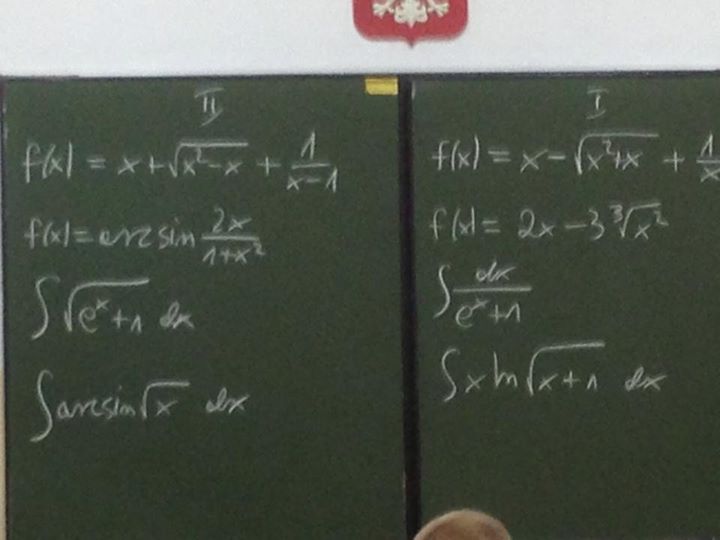 II
f(x) = x + √(x²-x) + 1/(x-1)
f(x) = arcsin 2x/(1+x²)
∫ √(eˣ+1) dx
∫ arcsin √x dx
I
f(x) = x - √(x²+x) + 1/x
f(x) = 2x - 3 ³√x²
∫ dx/(eˣ+1)
∫ x ln √(x+1) dx